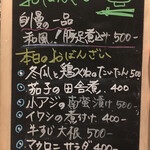 おばんざい
自慢の一品
和風!豚足煮込み 500-
本日のおばんざい
冬瓜と鶏つくねのたいたん 500-
茄子の田舎煮 400-
小アジの南蛮漬け 500-
イワシの煮付け 400-
牛すじ大根 500-
マカロニサラダ 400-